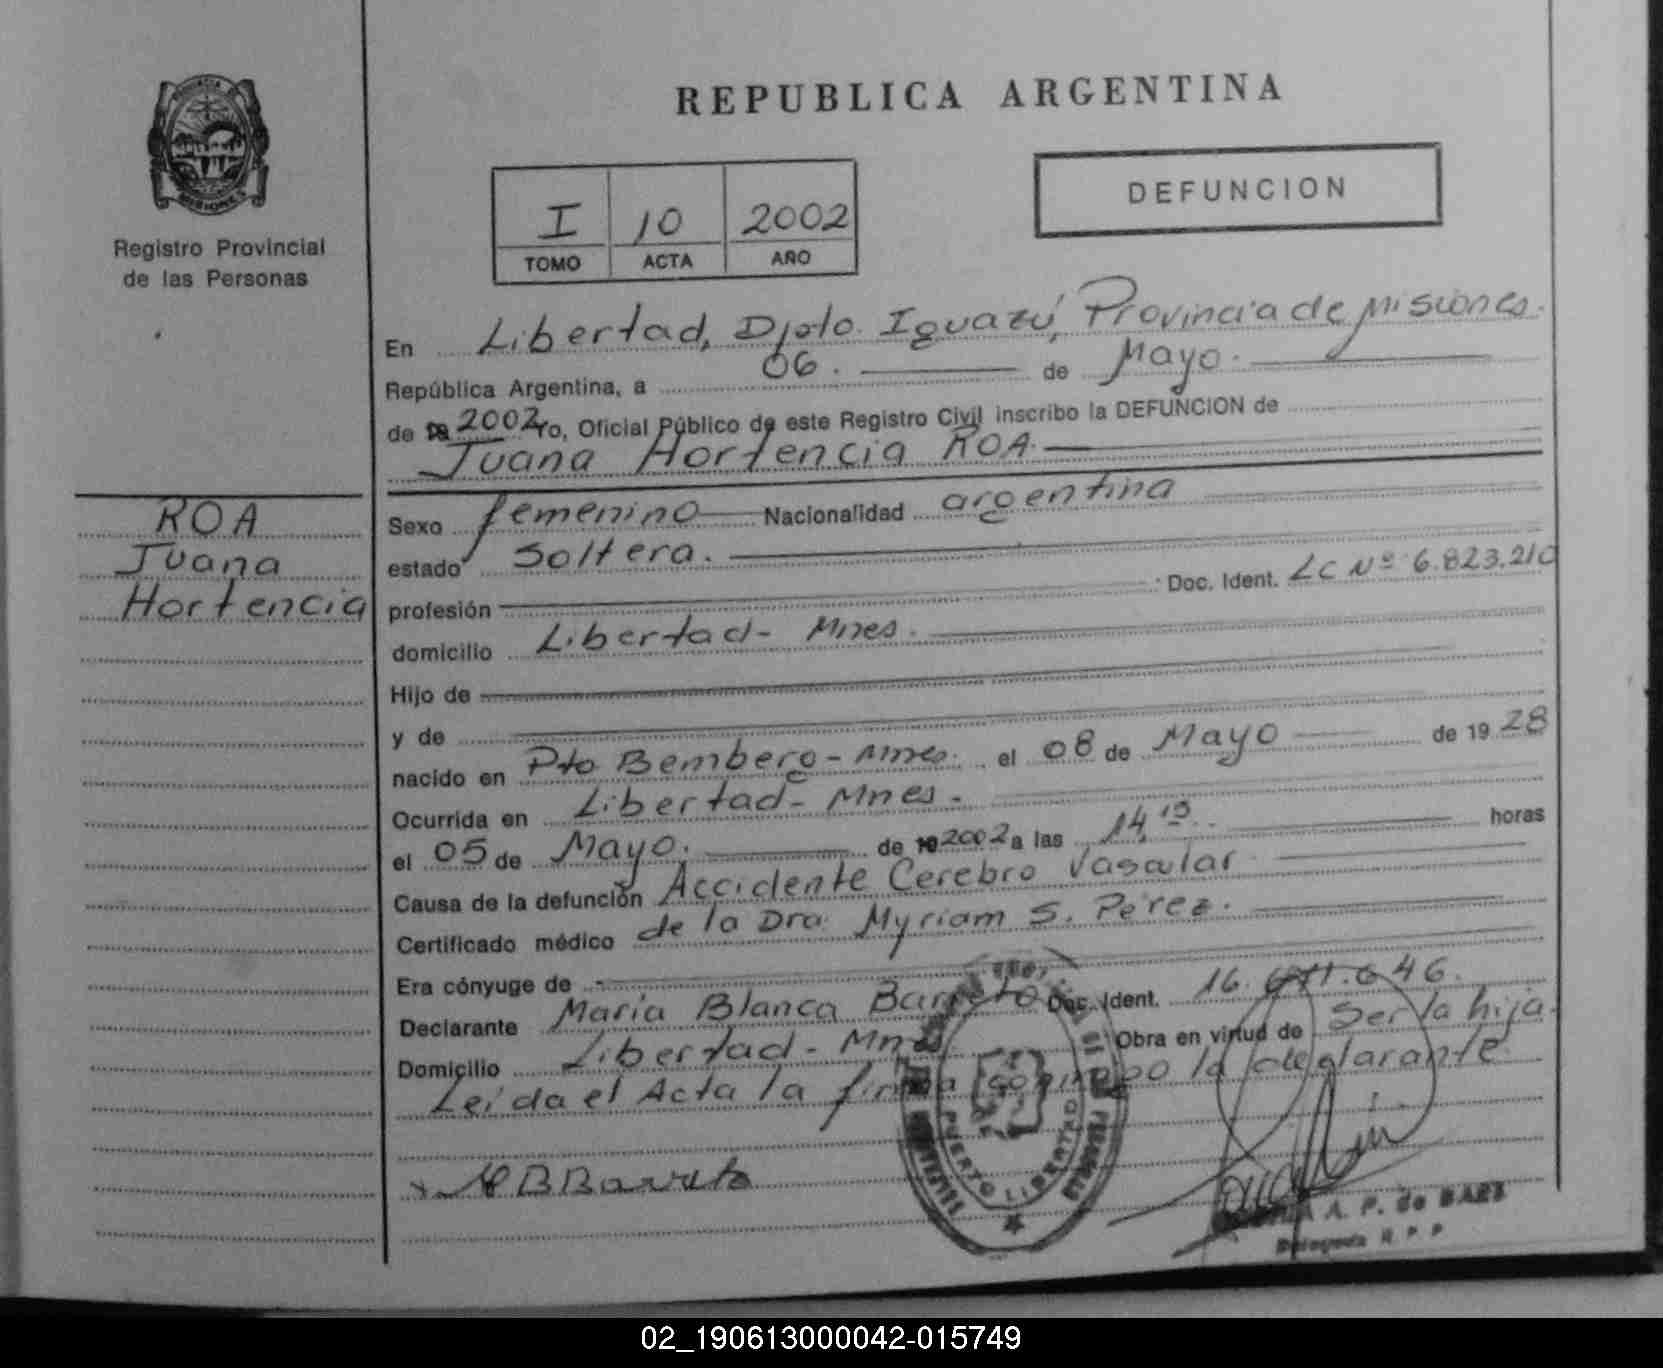 REPUBLICA ARGENTINA
DEFUNCION
I 10 2002
TOMO ACTA AÑO
MISIONES
Registro Provincial
de las Personas
ROA
Juana
Hortencia
En Libertad, Dpto. Iguazú, Provincia de Misiones.
República Argentina, a 06. de Mayo.
de 2002 Yo, Oficial Público de este Registro Civil inscribo la DEFUNCION de
Juana Hortencia ROA.
Sexo femenino Nacionalidad argentina
estado Soltera.
profesión Doc. Ident. LC Nº 6.823.210
domicilio Libertad - Mnes.
Hijo de
y de
nacido en Pto Bemberg - Mnes. el 08 de Mayo de 19 28
Ocurrida en Libertad - Mnes.
el 05 de Mayo. de 2002 a las 14, horas
Causa de la defunción Accidente Cerebro Vascular
Certificado médico de la Dra. Myriam S. Pérez.
Era cónyuge de
Declarante María Blanca Barreto Doc. Ident. 16. .646.
Domicilio Libertad - Mnes. Obra en virtud de Ser la hija.
Leída el Acta la firma conmigo la declarante.
M B Barreto
PUERTO LIBERTAD
A. P. de BAEZ
Delegada R P P
02_190613000042-015749